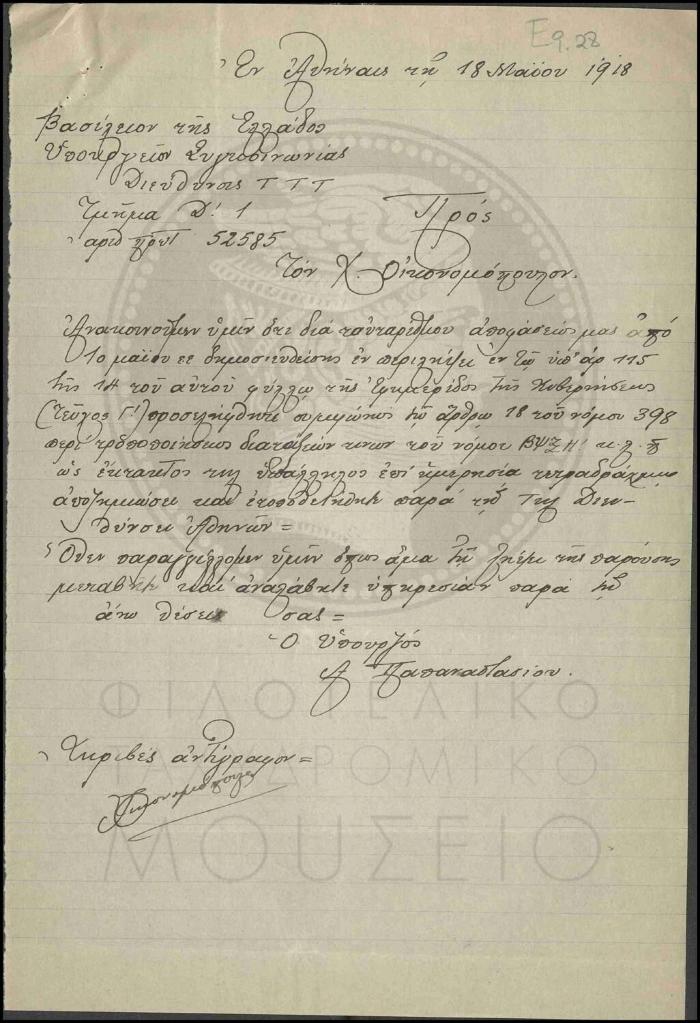 Eg. 28
Ἐν Ἀθήναις τῇ 18 Μαΐου 1918
Βασίλειον τῆς Ἑλλάδος
Ὑπουργεῖον Συγκοινωνίας
Διεύθυνσις Τ Τ Τ
Τμῆμα Δ! 1
ἀριθ πρωτ 52585
Πρός
Τὸν Χ. Οἰκονομόπουλον.
Ἀνακοινοῦμεν ὑμῖν ὅτι διὰ ταυταρίθμου ἀποφάσεώς μας ἀπὸ
10 μαΐου ἐ ἔ δημοσιευθείσης ἐν περιλήψει ἐν τῷ ὑπ' ἀρ 115
τῆς 14 τοῦ αὐτοῦ φύλλῳ τῆς Ἐφημερίδος τῆς Κυβερνήσεως
(Τεῦχος Γ!) προσελήφθητε συμφώνως τῷ ἄρθρῳ 18 τοῦ νόμου 398
περὶ τροποποιήσεως διατάξεών τινων τοῦ νόμου ΒΨΞΗ' κ.λ.π
ὡς ἔκτακτος τηλ ὑπάλληλος ἐπὶ ἡμερησίᾳ τετραδράχμῳ
ἀποζημιώσει καὶ ἐτοποθετήθητε παρὰ τῇ Τηλ Διευ-
θύνσει Ἀθηνῶν =
Ὅθεν παραγγέλλομεν ὑμῖν ὅπως ἅμα τῇ λήψει τῆς παρούσης
μεταβῆτε καὶ ἀναλάβητε ὑπηρεσίαν παρὰ τῇ
ἄνω θέσει σας =
Ὁ Ὑπουργός
Α Παπαναστασίου.
Ἀκριβὲς ἀντίγραφον =
ΦΙΛΟΤΕΛΙΚΟ
ΤΑΧΥΔΡΟΜΙΚΟ
ΜΟΥΣΕΙΟ